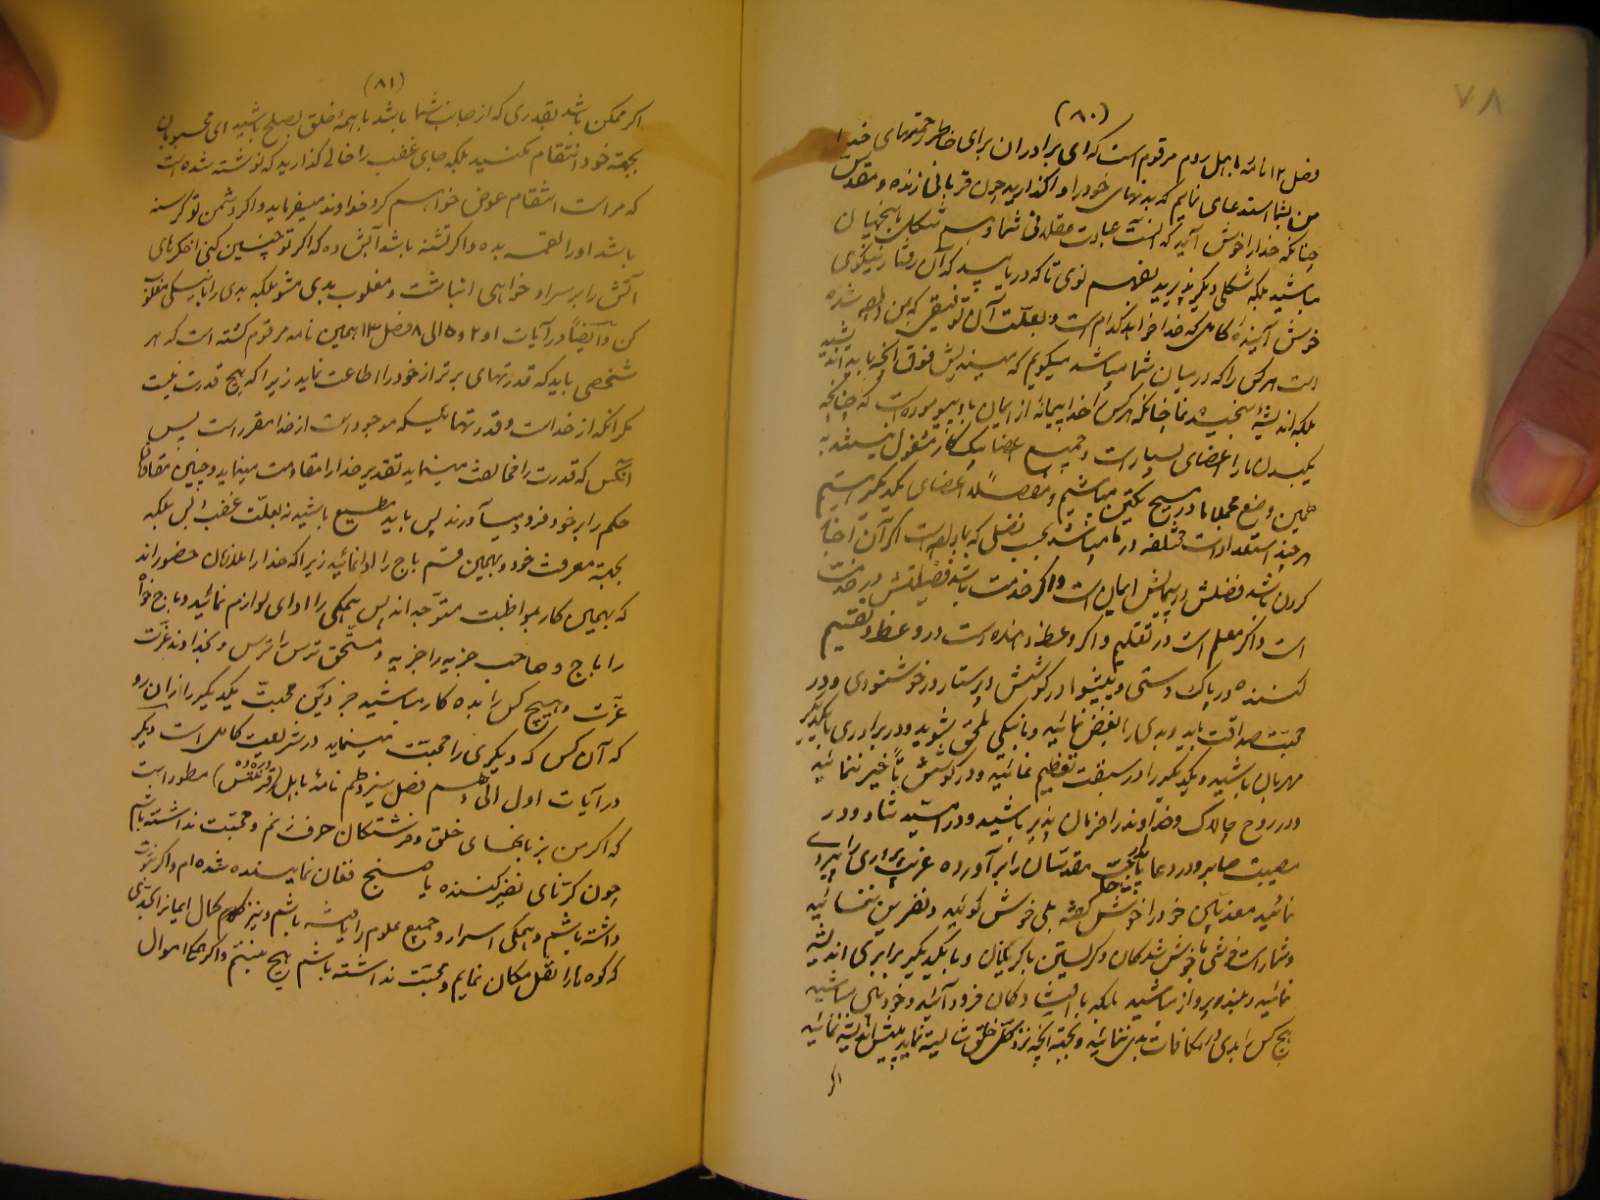 ۷۸
(۸۰)
فصل ۱۲ نامه باهل روم مرقوم است که ای برادران برای خاطر رحمتهای خدا
من بشما استدعا می نمایم که بدنهای خود را واگذارید چون قربانی زنده و مقدس
چنانکه خدا را خوش آید که اینست عبادت عقلانی شما و بهم شکل باینجهان
مباشید بلکه بشکل دیگر پذیرید بفهم نوی تا که دریابید که آن رفتار نیکوی
خوش آینده کامل که خدا خواهد کدام است و بعلت آن توفیقی که بمن داده شده
است هر کس را که در میان شما میباشد میگویم که میندیش فوق آنچه باید اندیشید
بلکه اندیشه سنجیده نما چنانکه هر کس را خدا پیمانه از ایمان باو پیموده است که چنانچه
یکبدن ما را اعضای بسیار است و جمیع اعضا بیک کار مشغول نیستند به
همین وضع مجملا ما در مسیح یکتن میباشیم و مفصلا اعضای یکدیگر هستیم
هر چند استعدادات مختلفه در ما میباشد بحسب فضلی که بما داده است اگر آن اخبار
کردن باشد فضلش در پیمایش ایمان است و اگر خدمت باشد فضیلتش در خدمت
است و اگر معلم است در تعلیم و اگر وعظ دهنده است در وعظ و تقسیم
کننده در پاک دستی و پیشوا در کوشش و پرستار در خوشنودی و در
محبت صداقت باید و بدی را بغض نمائید و بنیکی ملحق شوید و در برادری با یکدیگر
مهربان باشید و یکدیگر را در سبقت تعظیم نمائید و در کوشش تأخیر ننمائید
و در روح چالاک و خداوند را فرمان پذیر باشید و در امید شاد و در
مصیبت صابر و در دعا پایدار حاجت مقدسان را برآورده غریب پروری را پیروی
نمائید معذبان خود را خوش گفته بلی خوش گوئید و نفرین ننمائید
و شما راست خوشی با خوش شدگان و گریستن با گریندگان و با یکدیگر برابری اندیشه
نمائید و بلند پرواز مباشید بلکه با افتادگان فرود آئید و خود بین مباشید
هیچ کس را بدی در مکافات بدی ننمائید و بجهة آنچه نزد کل خلق شایسته نماید پیش اندیشه نمائید
اگر
(۸۱)
اگر ممکن باشد بقدری که از جانب شما باشد با همهٔ خلق بصلح باشید ای محبوبان
بجهة خود انتقام مکشید بلکه جای غضب را خالی گذارید که نوشته شده است
که مراست انتقام عوض خواهم کرد خداوند میفرماید و اگر دشمن تو گرسنه
باشد او را لقمه بده و اگر تشنه باشد آبش ده که اگر تو چنین کنی اخگرهای
آتش را بر سر او خواهی انباشت و مغلوب بدی مشو بلکه بدی را بنیکی مغلوب
کن و ایضاً در آیات ۱ و ۲ و ۵ الی ۸ فصل ۱۳ همین نامه مرقوم گشته است که هر
شخصی باید که قدرتهای برتر از خود را اطاعت نماید زیرا که هیچ قدرت نیست
مگر آنکه از خداست و قدرتهائیکه موجود است از خدا مقرر است پس
آنکس که قدرت را مخالفت مینماید تقدیر خدا را مقاومت مینماید و چنین مقاومان
حکم را بر خود فرود میآورند پس باید مطیع باشید نه بعلت غضب و بس بلکه
بجهة معرفت خود و بهمین قسم باج را ادا نمائید زیرا که خدا را ملازمان حضوراند
که بهمین کار بمواظبت متوجه اند پس همگی را ادای لوازم نمائید و باج خواه
را باج و صاحب جزیه را جزیه و مستحق ترس را ترس و خداوند عزت
عزت و هیچ کس را بده کار مباشید جز دین محبت یکدیگر را از آن رو
که آن کس که دیگری را محبت مینماید در شریعت کامل است دیگر
در آیات اول الی هشتم فصل سیزدهم نامهٔ باهل (قرنتس) مسطور است
که اگر من بزبانهای خلق و فرشتگان حرف زنم و محبت نداشته باشم
چون کرنای نفیر کننده یا صنج فغان نماینده شده ام و اگر نبوت
داشته باشم و همگی اسرار و جمیع علوم را یافته باشم و نیز کمال ایمان را بحدی
که کوه ها را نقل مکان نمایم و محبت نداشته باشم هیچ هستم و اگر همگی اموال